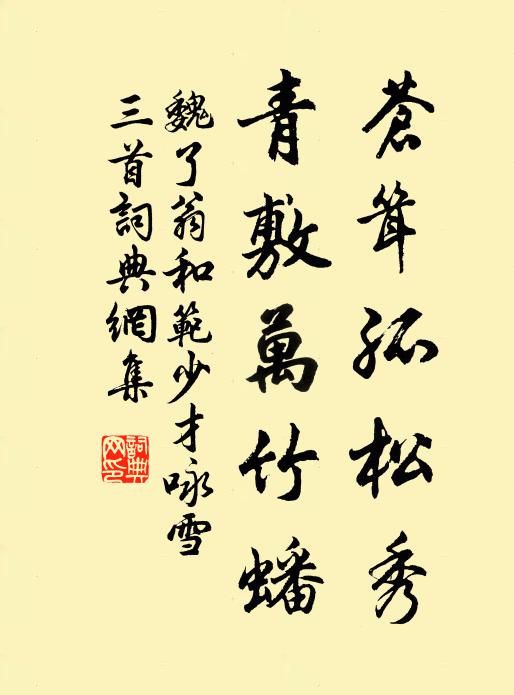 蒼茸孤松秀
青敷萬竹蟠
魏了翁和範少才咏雪
三首詞典網集
詞典网印